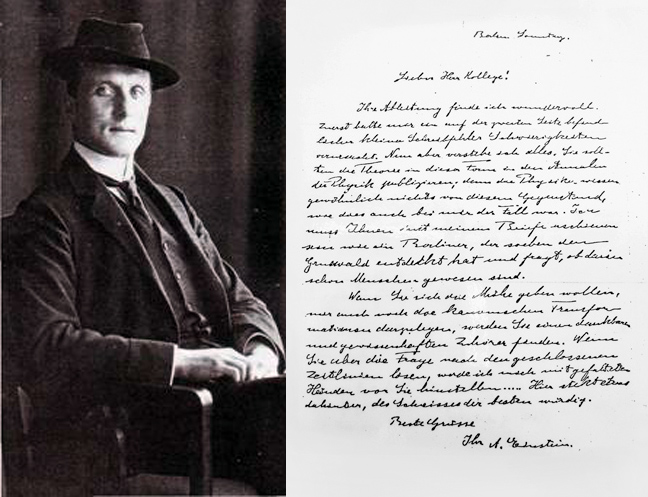 Berlin. Sonntag.
Lieber Herr Kollege!
Ihre Ableitung finde ich wundervoll.
Zuerst hatte mir ein auf der zweiten Seite befind-
licher kleiner Schreibfehler Schwierigkeiten
verursacht. Nun aber verstehe ich alles. Sie soll-
ten die Theorie in dieser Form in den Annalen
der Physik publizieren, denn die Physiker wissen
gewöhnlich nichts von diesem Gegenstand,
wie dies auch bei mir der Fall war. Ich
muss Ihnen mit meinem Briefe erschienen
sein wie ein Berliner, der soeben den
Grunewald entdeckt hat und fragt, ob darin
schon Menschen gewesen sind.
Wenn Sie sich die Mühe geben wollen,
mir auch noch die kanonischen Transfor
mationen darzulegen, werden Sie einen dankbaren
und gewissenhaften Zuhörer finden. Wenn
Sie aber die Frage nach den geschlossenen
Zeitlinien lösen, werde ich mich mit gefalteten
Händen vor Sie hinstellen..... Hier steckt etwas
dahinter, des Schweisses der besten würdig.
Beste Grüsse
Ihr A. Einstein.